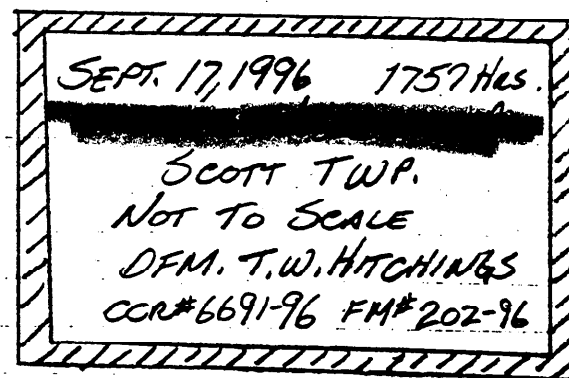 SEPT. 17, 1996 1757 HRS.
SCOTT TWP.
NOT TO SCALE
DFM. T.W. HITCHINGS
CCR#6691-96 FM#202-96